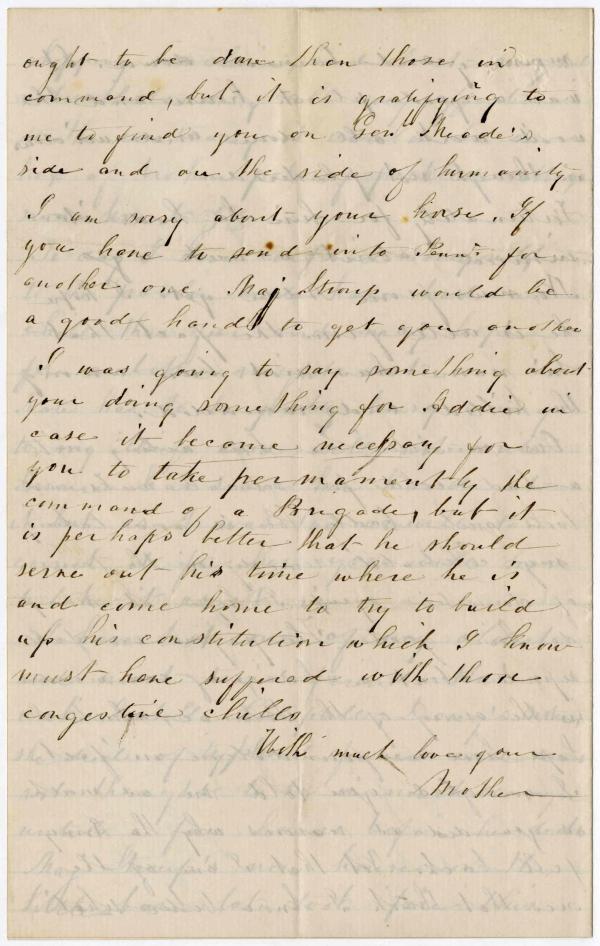 ought to be done then those in
command, but it is gratifying to
me to find you on Genl Meade's
side and on the side of humanity
I am sorry about your horse. If
you have to send into Penna for
another one Maj Stroup would be
a good hand to get you another
I was going to say something about
your doing something for Addie in
case it became necessary for
you to take permanently the
command of a Brigade, but it
is perhaps better that he should
serve out his time where he is
and come home to try to build
up his constitution which I know
must have suffered with those
congestive chills
With much love your
Mother